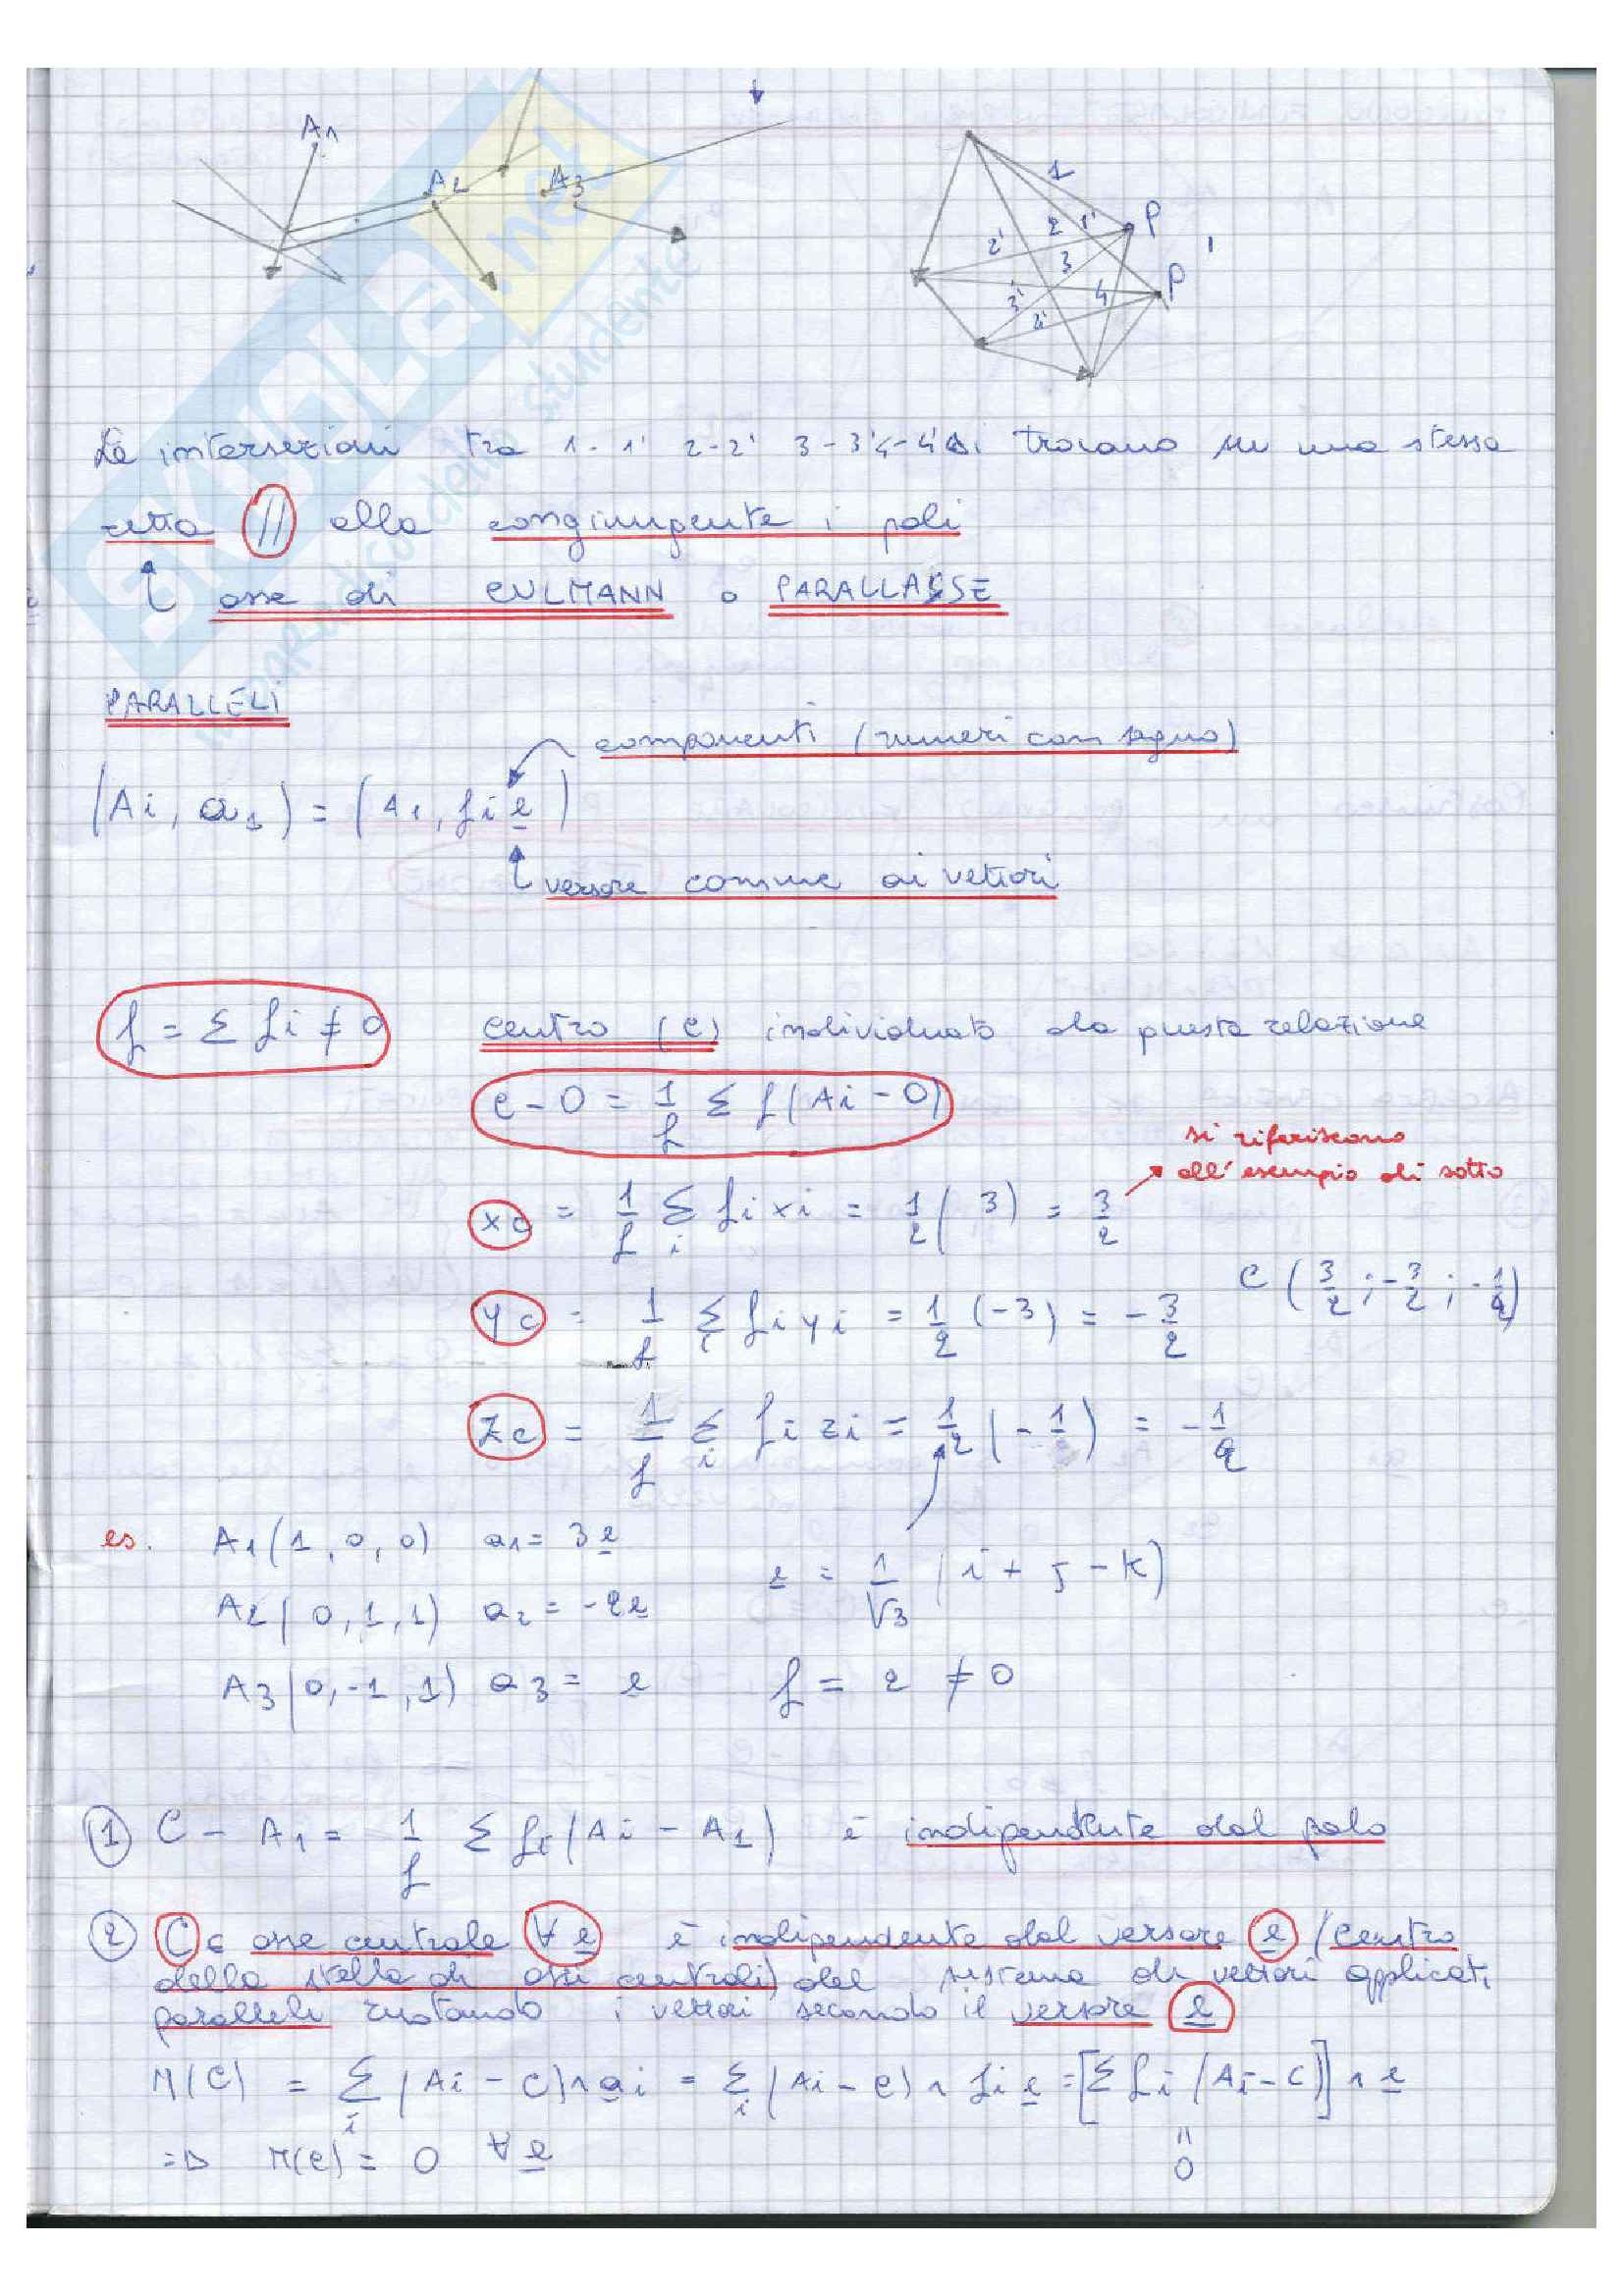 A1
A2
A3
1
2
1'
P
2'
3
1
P
3'
4
Le intersezioni tra 1-1' 2-2' 3-3' 4-4' si trovano su una stessa
retta // alla congiungente i poli
asse di CULMANN o PARALLASSE
PARALLELI
componenti (numeri con segno)
(Ai, a1) = (A1, fi e)
versore comune ai vettori
f = Σ fi ≠ 0 centro (C) individuato da questa relazione
C - O = 1/f Σ f(Ai - O)
si riferiscono
all'esempio di sotto
xc = 1/f Σi fi xi = 1/2 ( 3) = 3/2
C (3/2 ; -3/2 ; -1/2)
yc = 1/f Σi fi yi = 1/2 (-3) = -3/2
zc = 1/f Σi fi zi = 1/2 (-1) = -1/2
es. A1(1,0,0) a1 = 3e
e = 1/√3 (i + j - k)
A2(0,1,1) a2 = -2e
A3(0,-1,1) a3 = e f = 2 ≠ 0
1 C - A1 = 1/f Σ fi(Ai - A1) è indipendente dal polo
2 C ∈ asse centrale ∀ e è indipendente dal versore e (centro
della stella di assi centrali) del sistema di vettori applicati
paralleli ruotando i vettori secondo il versore e
M(C) = Σi (Ai - C)∧ai = Σi (Ai - C) ∧ fi e = [Σ fi (Ai - C)] ∧ e
=> M(C) = 0 ∀ e
= 0
SKUOLA.net